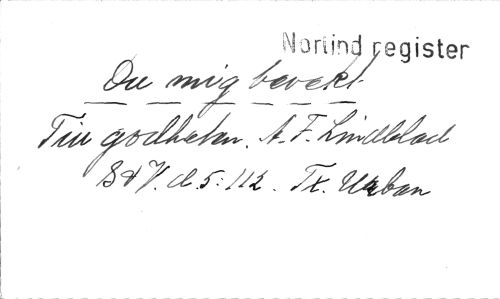 Norlind register
Du mig bevekt
Till godheten. A. F. Lindblad
S & V. d. 5:112. Tx. Urban